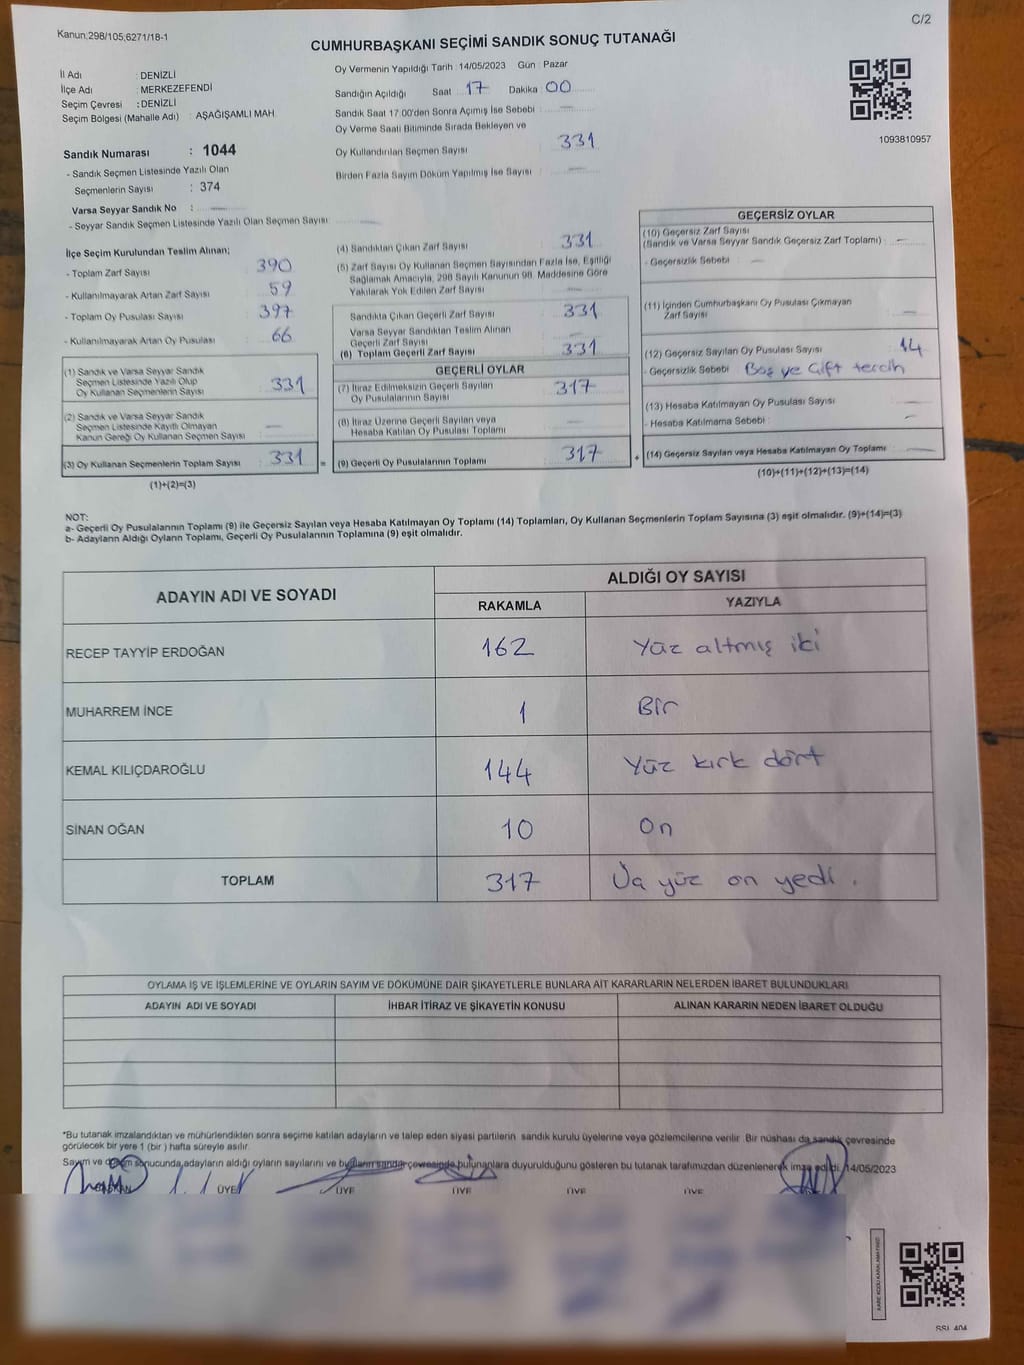 C/2
Kanun;298/105;6271/18-1
CUMHURBAŞKANI SEÇİMİ SANDIK SONUÇ TUTANAĞI
İl Adı : DENİZLİ
İlçe Adı : MERKEZEFENDİ
Seçim Çevresi : DENİZLİ
Seçim Bölgesi (Mahalle Adı) : AŞAĞIŞAMLI MAH
Sandık Numarası : 1044
- Sandık Seçmen Listesinde Yazılı Olan
Seçmenlerin Sayısı : 374
Varsa Seyyar Sandık No : —
- Seyyar Sandık Seçmen Listesinde Yazılı Olan Seçmen Sayısı : —
Oy Vermenin Yapıldığı Tarih : 14/05/2023 Gün : Pazar
Sandığın Açıldığı Saat : 17 Dakika : 00
Sandık Saat 17:00'den Sonra Açımış İse Sebebi : —
Oy Verme Saati Bitiminde Sırada Bekleyen ve
Oy Kullandırılan Seçmen Sayısı : 331
Birden Fazla Sayım Döküm Yapılmış İse Sayısı : —
1093810957
İlçe Seçim Kurulundan Teslim Alınan;
- Toplam Zarf Sayısı : 390
- Kullanılmayarak Artan Zarf Sayısı : 59
- Toplam Oy Pusulası Sayısı : 397
- Kullanılmayarak Artan Oy Pusulası : 66
(1) Sandık ve Varsa Seyyar Sandık
Seçmen Listesinde Yazılı Olup
Oy Kullanan Seçmenlerin Sayısı : 331
(2) Sandık ve Varsa Seyyar Sandık
Seçmen Listesinde Kayıtlı Olmayan
Kanun Gereği Oy Kullanan Seçmen Sayısı : —
(3) Oy Kullanan Seçmenlerin Toplam Sayısı : 331 =
(1)+(2)=(3)
(4) Sandıktan Çıkan Zarf Sayısı : 331
(5) Zarf Sayısı Oy Kullanan Seçmen Sayısından Fazla İse, Eşitliği
Sağlamak Amacıyla, 298 Sayılı Kanunun 98. Maddesine Göre
Yakılarak Yok Edilen Zarf Sayısı : —
Sandıkta Çıkan Geçerli Zarf Sayısı : 331
Varsa Seyyar Sandıktan Teslim Alınan
Geçerli Zarf Sayısı : —
(6) Toplam Geçerli Zarf Sayısı : 331
GEÇERLİ OYLAR
(7) İtiraz Edilmeksizin Geçerli Sayılan
Oy Pusulalarının Sayısı : 317
(8) İtiraz Üzerine Geçerli Sayılan veya
Hesaba Katılan Oy Pusulası Toplamı : —
(9) Geçerli Oy Pusulalarının Toplamı : 317 +
GEÇERSİZ OYLAR
(10) Geçersiz Zarf Sayısı
(Sandık ve Varsa Seyyar Sandık Geçersiz Zarf Toplamı) : —
- Geçersizlik Sebebi : —
(11) İçinden Cumhurbaşkanı Oy Pusulası Çıkmayan
Zarf Sayısı : —
(12) Geçersiz Sayılan Oy Pusulası Sayısı : 14
- Geçersizlik Sebebi : Boş ve Çift tercih
(13) Hesaba Katılmayan Oy Pusulası Sayısı : —
- Hesaba Katılmama Sebebi : —
(14) Geçersiz Sayılan veya Hesaba Katılmayan Oy Toplamı : —
(10)+(11)+(12)+(13)=(14)
NOT:
a- Geçerli Oy Pusulalarının Toplamı (9) ile Geçersiz Sayılan veya Hesaba Katılmayan Oy Toplamı (14) Toplamları, Oy Kullanan Seçmenlerin Toplam Sayısına (3) eşit olmalıdır. (9)+(14)=(3)
b- Adayların Aldığı Oyların Toplamı, Geçerli Oy Pusulalarının Toplamına (9) eşit olmalıdır.
ADAYIN ADI VE SOYADI ALDIĞI OY SAYISI
RAKAMLA YAZIYLA
RECEP TAYYİP ERDOĞAN 162 Yüz altmış iki
MUHARREM İNCE 1 Bir
KEMAL KILIÇDAROĞLU 144 Yüz kırk dört
SİNAN OĞAN 10 On
TOPLAM 317 yüz on yedi.
OYLAMA İŞ VE İŞLEMLERİNE VE OYLARIN SAYIM VE DÖKÜMÜNE DAİR ŞİKAYETLERLE BUNLARA AİT KARARLARIN NELERDEN İBARET BULUNDUKLARI
ADAYIN ADI VE SOYADI İHBAR İTİRAZ VE ŞİKAYETİN KONUSU ALINAN KARARIN NEDEN İBARET OLDUĞU
*Bu tutanak imzalandıktan ve mühürlendikten sonra seçime katılan adayların ve talep eden siyasi partilerin sandık kurulu üyelerine veya gözlemcilerine verilir. Bir nüshası da sandık çevresinde
görülecek bir yere 1 (bir) hafta süreyle asılır.
Sayım ve döküm sonucunda adayların aldığı oyların sayılarını ve bunların sandık çevresinde bulunanlara duyurulduğunu gösteren bu tutanak tarafımızdan düzenlenerek imza edildi. 14/05/2023
BAŞKAN ÜYE ÜYE ÜYE ÜYE ÜYE
SSİ 404